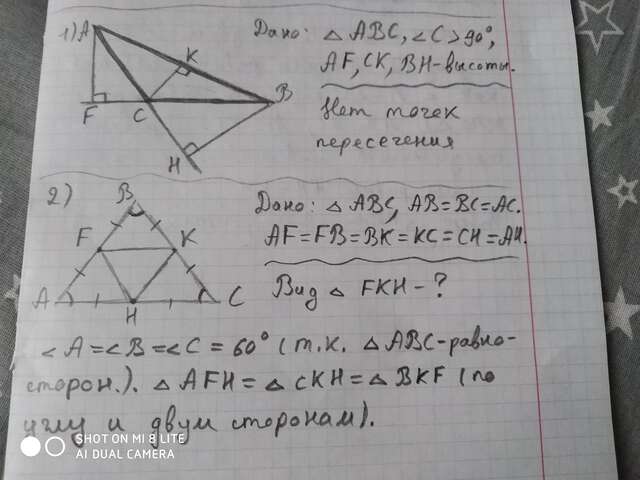 1) A
K
B
F
C
H
Дано: △ ABC, <C>90°,
AF, CK, BH-высоты.
Нет точек
пересечения
2)
B
F
K
A
H
C
Дано: △ ABC, AB=BC=AC.
AF=FB=BK=KC=CH=AH.
Вид △ FKH-?
<A=<B=<C=60° (т.к. △ ABC-равно-
сторон.). △ AFH=△ CKH=△ BKF (по
углу и двум сторонам).
SHOT ON MI 8 LITE
AI DUAL CAMERA